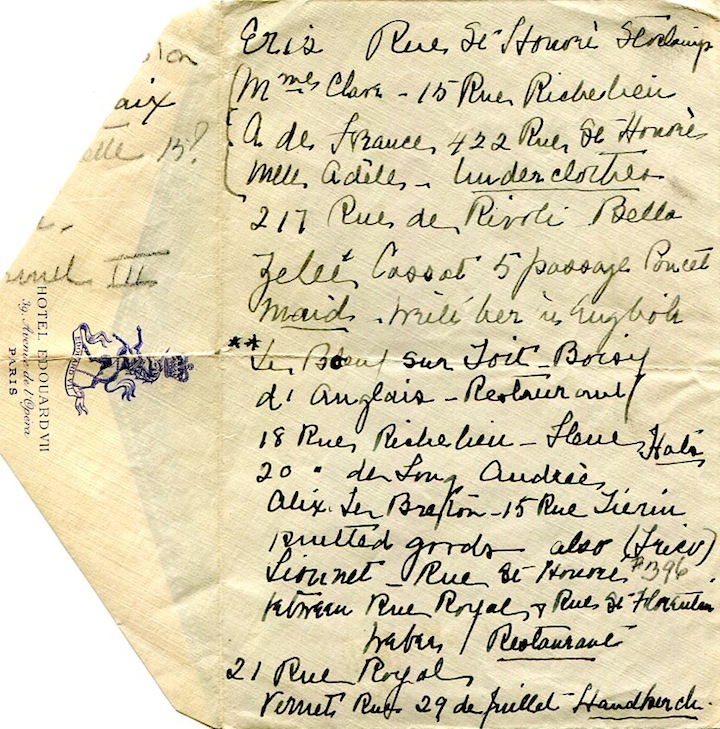 Rue St Honorè
Mmes Clare - 15 Rue Richelieu
A de France 422 Rue St Honorè
Melle Adèle - Underclothes
217 Rue de Rivoli Bella
Cassat 5 passage Poncet
Maid. Write her in English
** Le Boeuf sur Toit - Boisy
d'Anglais - Restaurant
18 Rue Richelieu - Hats
20 " de Long Andrèe
Alix Le Breton - 15 Rue
Knitted goods also (Trico)
Lionnet - Rue St Honorè #396
between Rue Royal & Rue St Florentin
Weber / Restaurant
21 Rue Royal
Vernet Rue 29 de Juillet Handkerch.
aix
ette 15?
III
HOTEL EDOUARD VII
39, Avenue de l'Opera
PARIS
EDOUARD VII